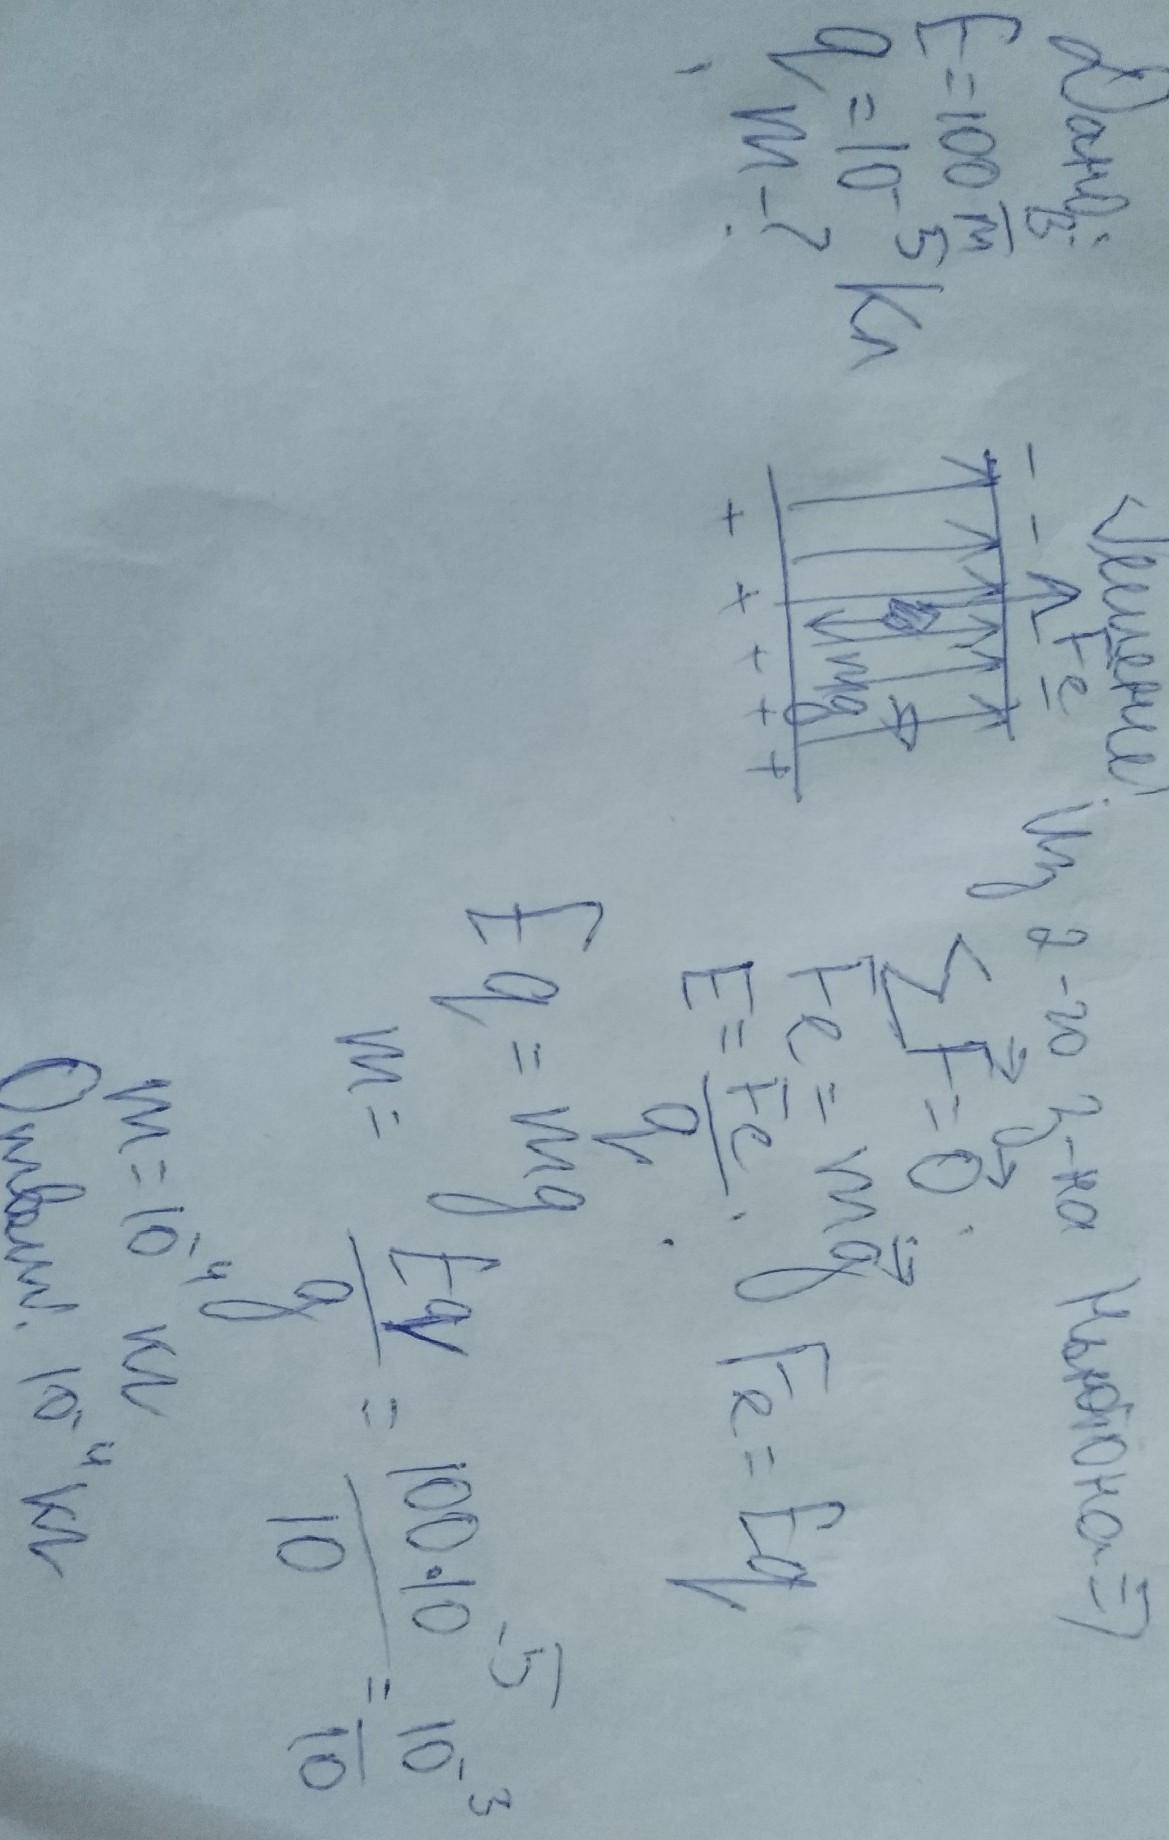 Дано:
E = 100 В/м
q = 10⁻⁵ Кл
m - ?
Решение:
- - Fе
mg
+ + + + +
Из 2-го з-на Ньютона =>
∑F⃗ = 0⃗
Fе = mg⃗
E = Fе/q. Fе = Eq
Eq = mg
m = Eq/g = 100·10⁻⁵/10 = 10⁻³/10
m = 10⁻⁴ кг
Ответ: 10⁻⁴ кг